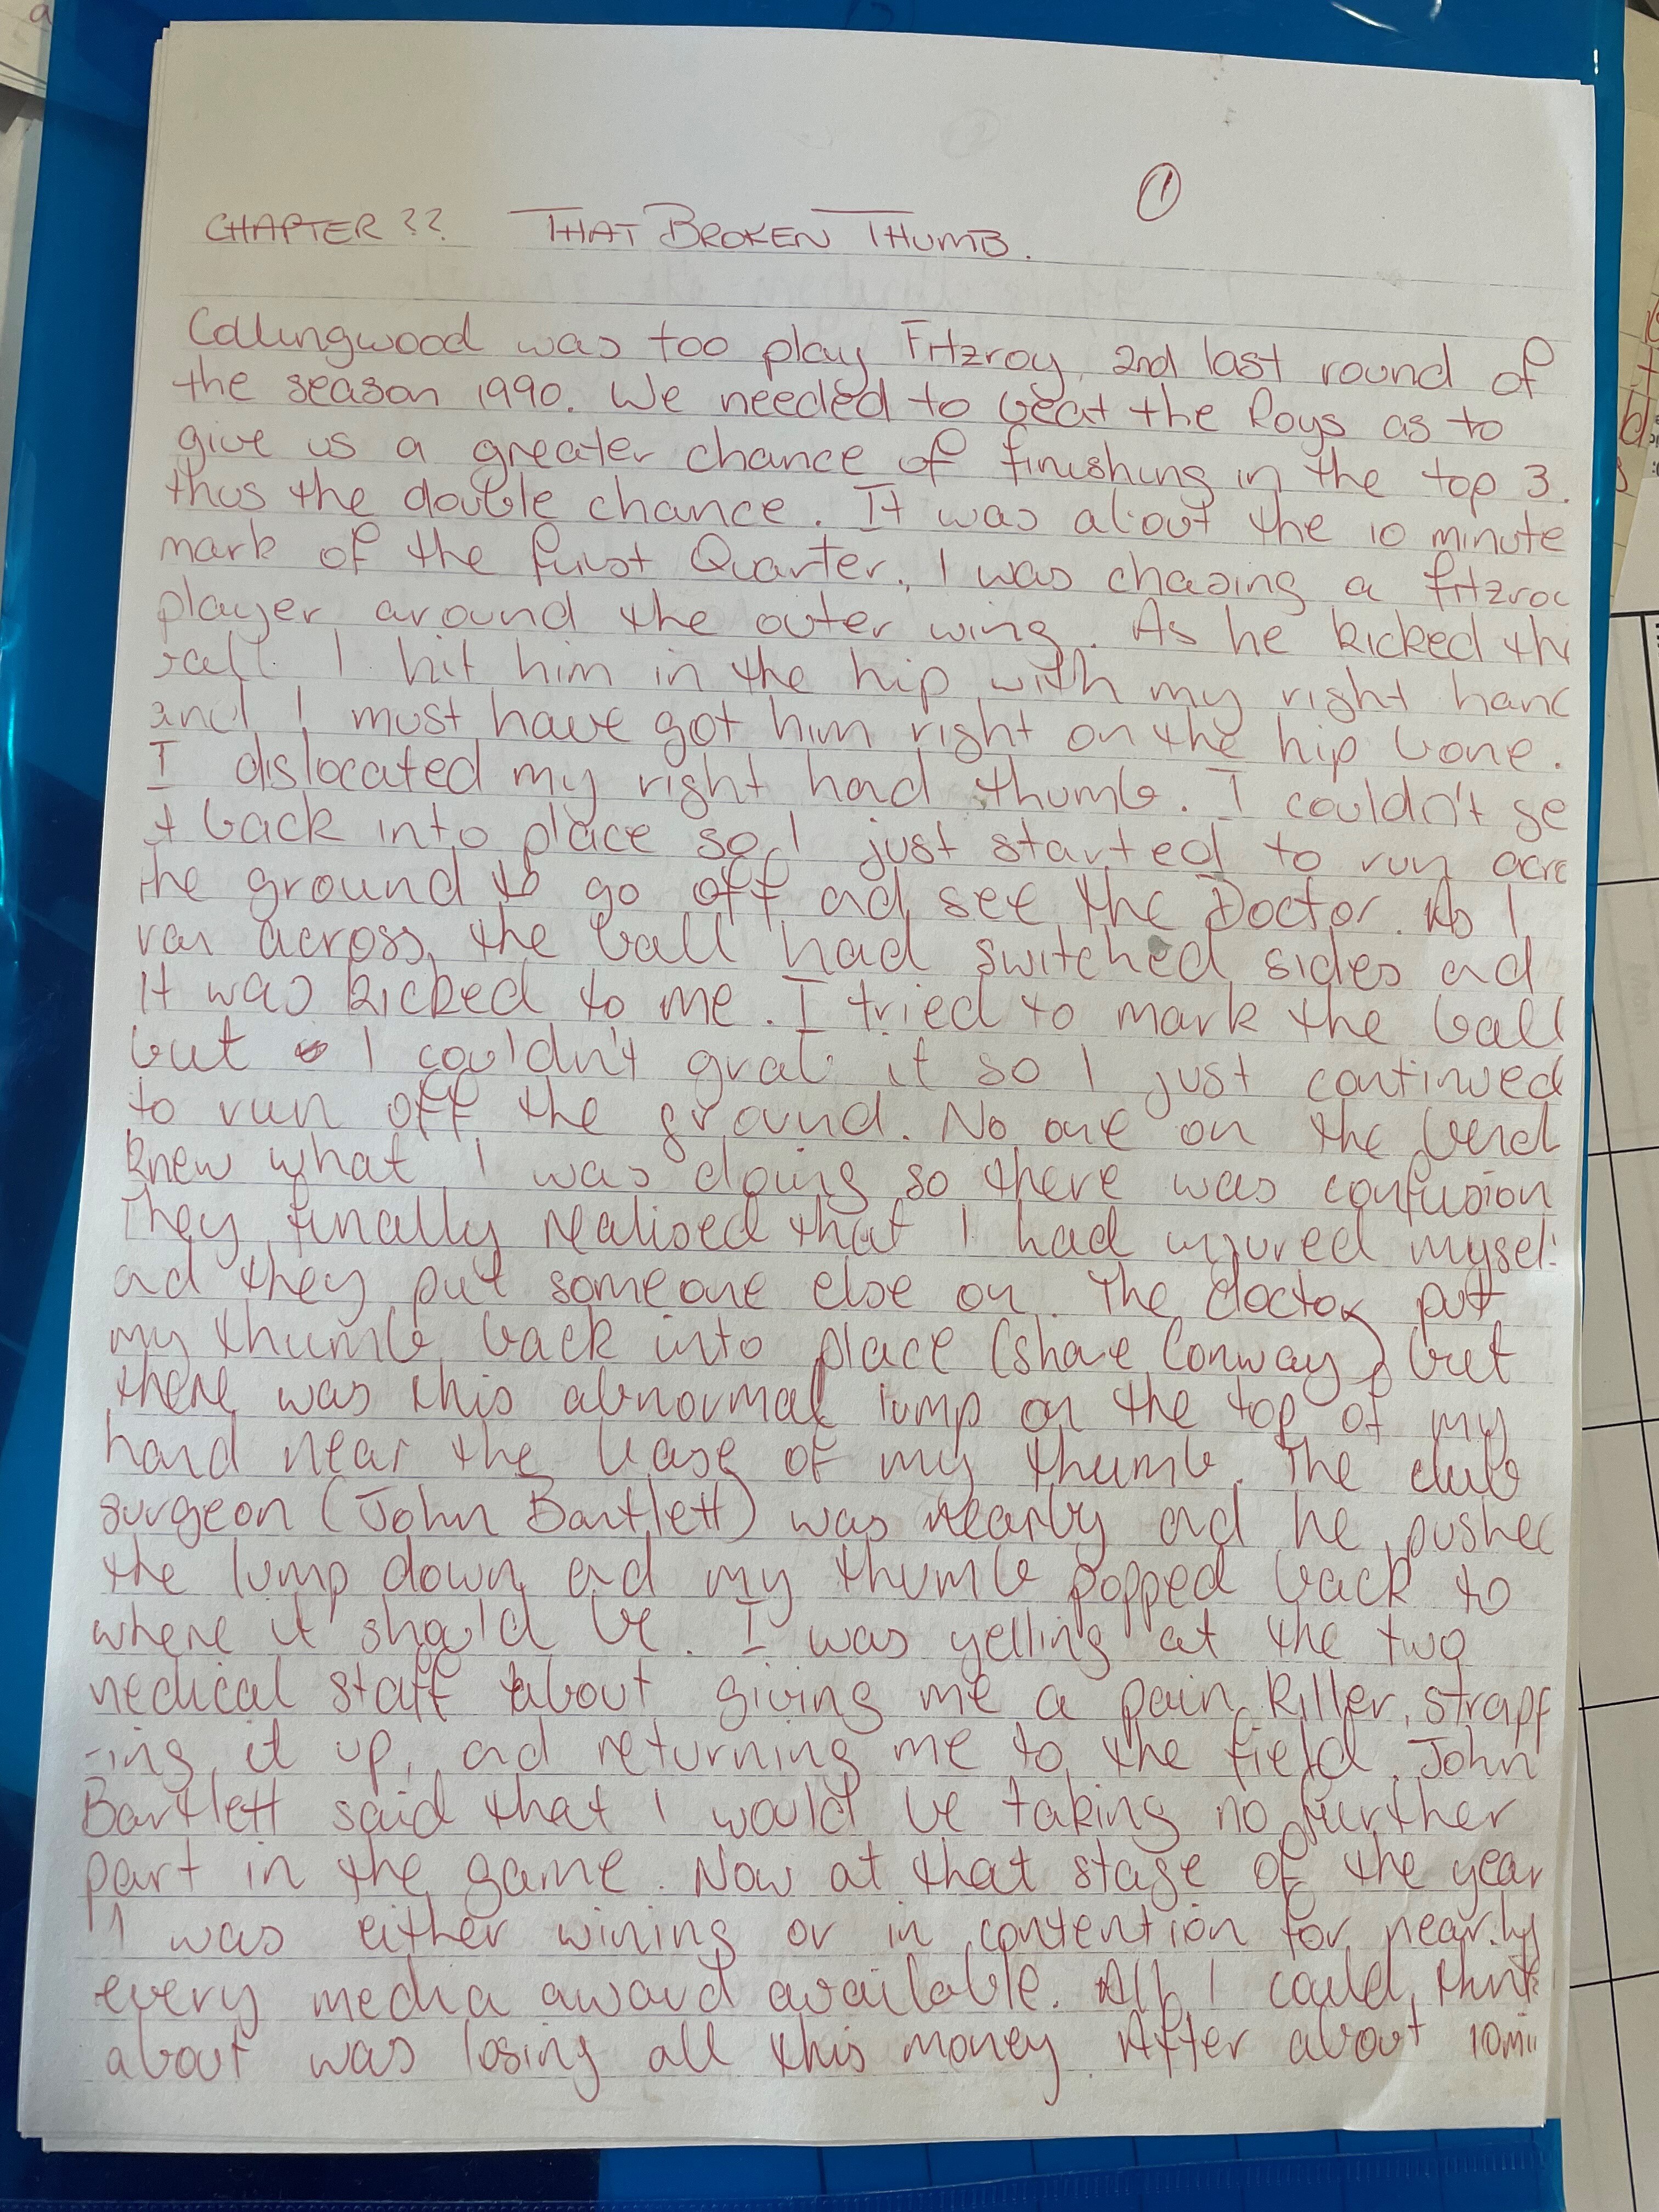 ①
CHAPTER ?? THAT BROKEN THUMB.
Collingwood was too play Fitzroy, 2nd last round of
the season 1990. We needed to beat the Roys as to
give us a greater chance of finishing in the top 3.
thus the double chance. It was about the 10 minute
mark of the first Quarter, I was chasing a fitzroc
player around the outer wing. As he kicked th
ball I hit him in the hip with my right hand
and I must have got him right on the hip bone.
I dislocated my right had thumb. I couldn't ge
it back into place so I just started to run acro
the ground to go off ad see the Doctor. As I
ran across, the ball had switched sides ad
it was kicked to me. I tried to mark the ball
but I couldn't grab it so I just continued
to run off the ground. No one on the bench
knew what I was doing so there was confusion
They finally realised that I had injured myself
ad they put someone else on. The doctor put
my thumb back into place (Shane Conway) but
there was this abnormal lump on the top of my
hand near the base of my thumb. The club
surgeon (John Bartlett) was nearby ad he pushed
the lump down ad my thumb popped back to
where it should be. I was yelling at the two
medical staff about giving me a pain killer, strapp
-ing it up, ad returning me to the field. John
Bartlett said that I would be taking no further
part in the game. Now at that stage of the year
I was either wining or in contention for nearly
every media award available. All I could think
about was losing all this money. After about 10min